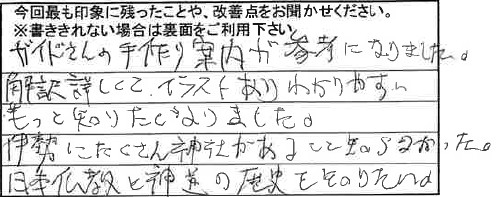 今回最も印象に残ったことや、改善点をお聞かせください。
※書ききれない場合は裏面をご利用下さい。
ガイドさんの手作り案内が参考になりました。
解説詳しくて、イラストありわかりやすい
もっと知りたくなりました。
伊勢にたくさん神社があること知らなかった。
日本仏教と神道の歴史をしりたい。